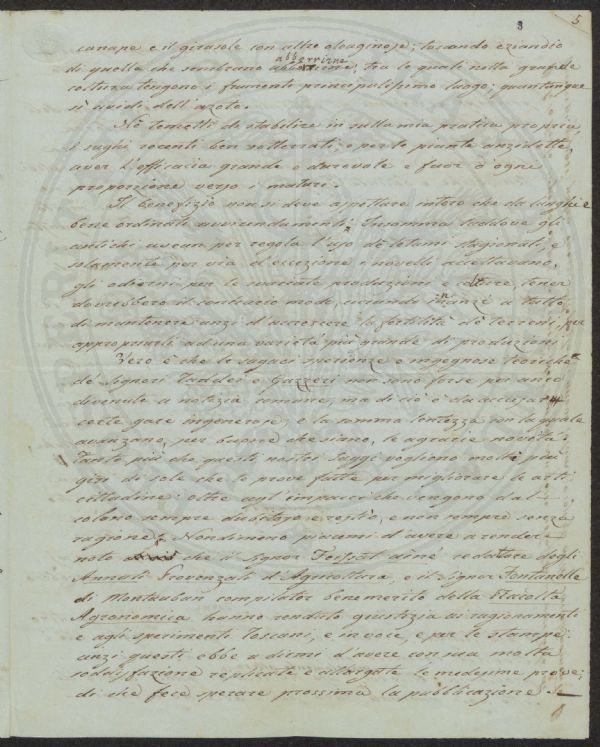 3 5
canape e il girasole con altre oleaginose; toccando eziandio
di quelle che sembrano abborrirne, tra le quali nella grande
coltura tengono i frumenti principalissimo luogo; quantunque
sì avide dell'azoto.
Nè temetti di stabilire in sulla mia pratica propria,
i sughi recenti ben sotterrati, e per le piante anzidette,
aver l'efficacia grande e durevole e fuor d'ogni
proporzione verso i maturi.
Il benefizio non si deve aspettare intero che da lunghi e
bene ordinati avvicendamenti. Insomma laddove gli
antichi avean per regola l'uso de' letami stagionati, e
solamente per via d'eccezione i novelli accettavano,
gli odierni per le svariate produzioni e colture, tener
dovrebbero il contrario modo, curando innanzi a tutto,
di mantenere anzi d'accrescere la fertilità de' terreni, per
appropriarli ad una varietà più grande di produzioni.
Vero è che le sagaci sperienze e ingegnose teoriche
de' Signori Taddei e Gazzeri non sono forse per anco
divenute a notizia comune, ma di ciò è da accusare
certe gare ingenerose, e la somma lentezza con la quale
avanzano, per buone che siano, le agrarie novità.
Tanto più che questi nostri saggi vogliono molti più
giri di sole che le prove fatte per migliorare le arti
cittadine: oltre agl'impacci che vengono dal
colono sempre dubitoso e restìo, e non sempre senza
ragione. Nondimeno piacemi d'avere a rendere
noto che il Signor ainé redattore degli
Annali Provenzali d'Agricoltura, e il Signor Fontanelle
di Montauban compilator benemerito della Raccolta
Agronomica hanno renduto giustizia ai ragionamenti
e agli sperimenti Toscani, e in voce, e per le stampe:
anzi questi ebbe a dirmi d'avere con sua molta
soddisfazione replicate e allargate le medesime prove;
di che fece sperare prossima la pubblicazione.